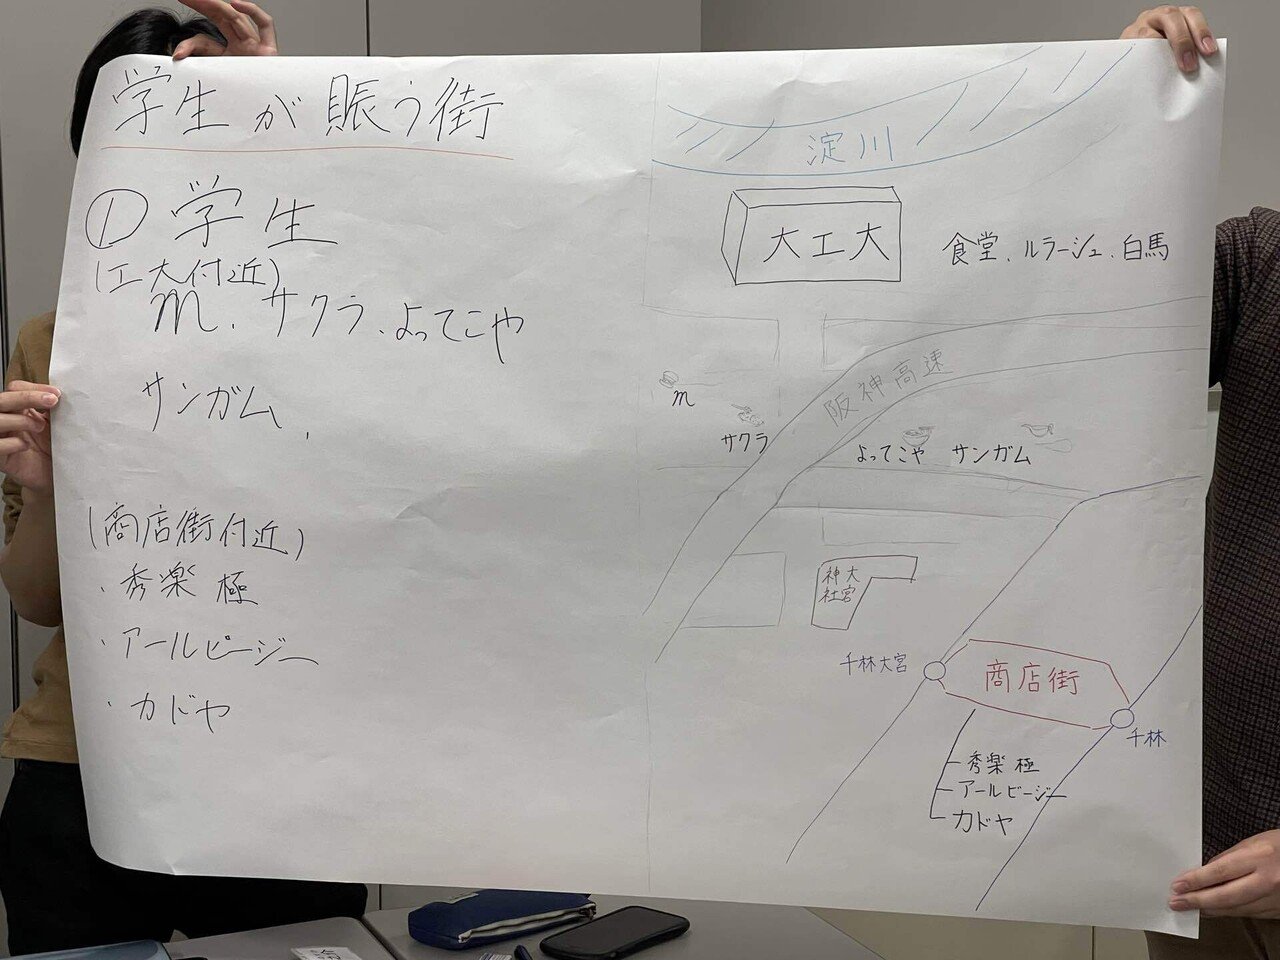 学生が賑う街
① 学生
(工大付近)
m、サクラ、よってこや
サンガム、
(商店街付近)
・秀楽 極
・アールビージー
・カドヤ
淀川
大工大
食堂、ルラーシュ、白馬
阪神高速
m
サクラ
よってこや サンガム
大宮
神社
千林大宮
商店街
千林
秀楽 極
アールビージー
カドヤ